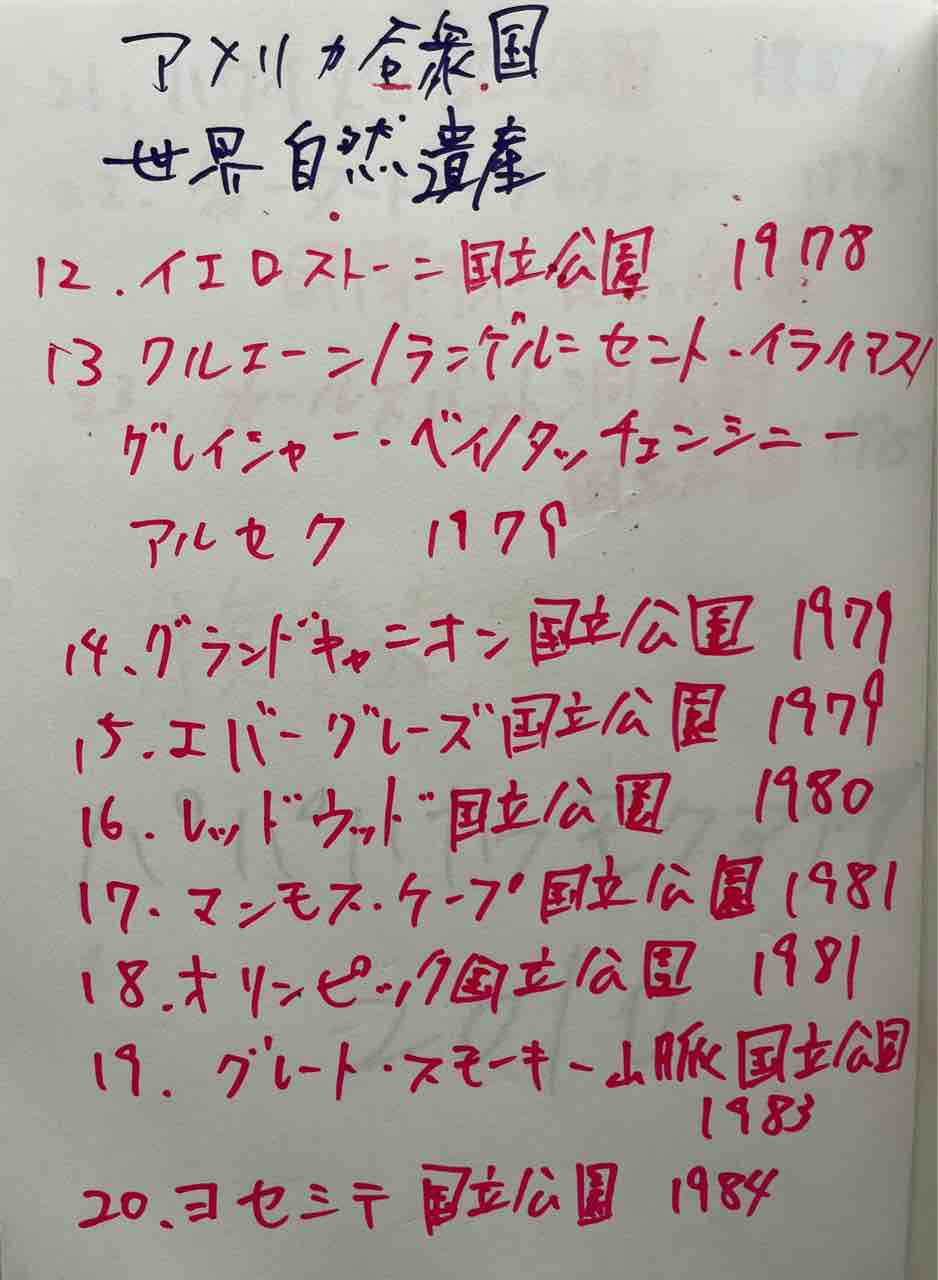 アメリカ合衆国
世界自然遺産
12.イエロストーン国立公園 1978
13 クルエーン/ランゲル=セント・イライアス/
グレイシャー・ベイ/タッチェンシニー
アルセク 1979
14.グランドキャニオン国立公園 1979
15.エバーグレーズ国立公園 1979
16.レッドウッド国立公園 1980
17.マンモス・ケーブ国立公園 1981
18.オリンピック国立公園 1981
19.グレート・スモーキー山脈国立公園
1983
20.ヨセミテ国立公園 1984